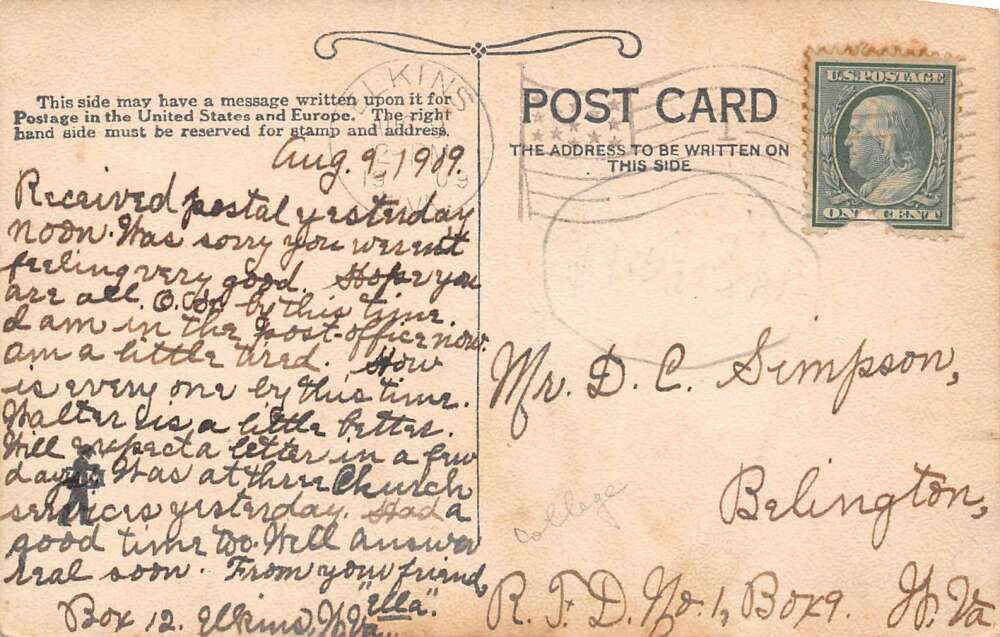 This side may have a message written upon it for
Postage in the United States and Europe. The right
hand side must be reserved for stamp and address.
Aug. 9, 1909.
Received postal yesterday
noon. Was sorry you weren't
feeling very good. Hope you
are all O.K. by this time.
I am in the post-office now.
am a little tired. How
is every one by this time.
Walter is a little better.
Will expect a letter in a few
days. Was at three Church
services yesterday. Had a
good time too. Will answer
real soon. From your friend,
"Ella".
Box 12. Elkins, W.Va.
ELKINS
POST CARD
THE ADDRESS TO BE WRITTEN ON
THIS SIDE
U.S. POSTAGE
ONE CENT
Mr. D. C. Simpson,
Belington,
college
R. F. D. No. 1, Box 9. W. Va